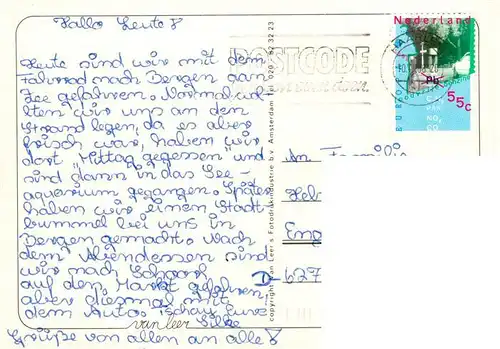 Hallo Leute!
Heute sind wir mit dem
Fahrrad nach Bergen aan
Zee gefahren. Normal woll
ten wir uns an den
Strand legen, da es aber
frisch war, haben wir
dort Mittag gegessen und
sind dann in das See-
aquerium gegangen. Später
haben wir einen Stadt-
bummel bei uns in
Bergen gemacht. Nach
dem Abendessen sind
wir nach Schoorl
auf den Markt gefahren,
aber diesmal mit
dem Auto. Tschau eure
Silke
Grüße von allen an alle!
van leer
copyright van Leer's Fotodrukindustrie b.v. Amsterdam tel. 020 - 82 32 23
POSTCODE
Nederland
EUROPA
55c
An Familie
Heb
Eng
D-627